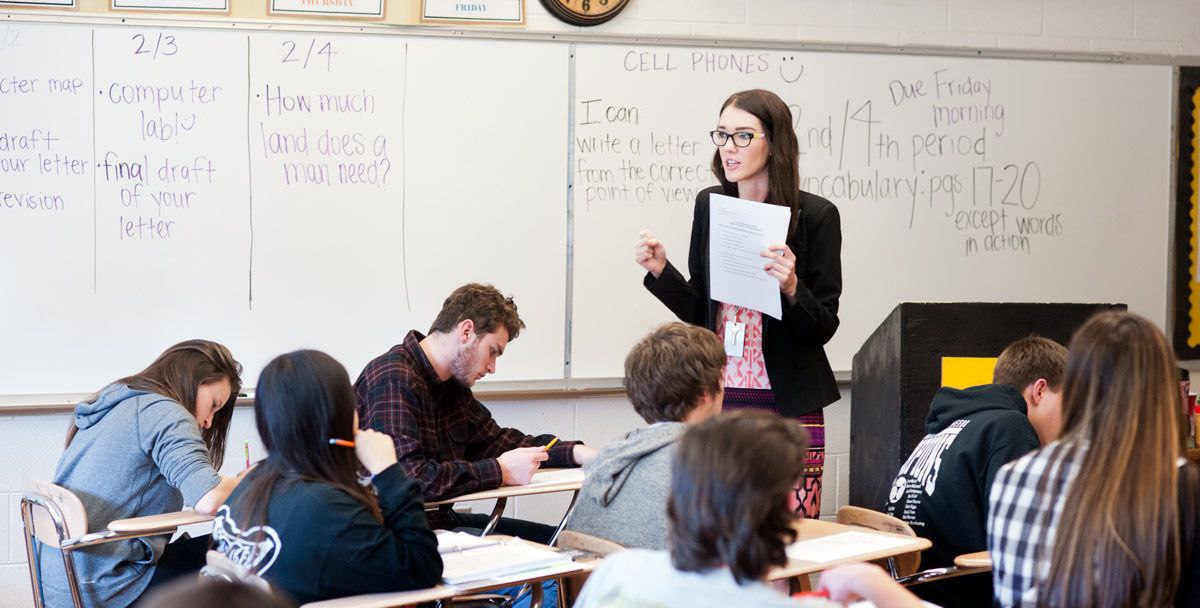 FRIDAY
THURSDAY
FRIDAY
2/2
cter map
draft
our letter
revision
2/3
• computer
lab!
• final draft
of your
letter
2/4
• How much
land does a
man need?
CELL PHONES
I can
write a letter
from the correc
point of view
Due Friday
morning
2nd/4th period
vocabulary: pgs 17-20
except words
in action